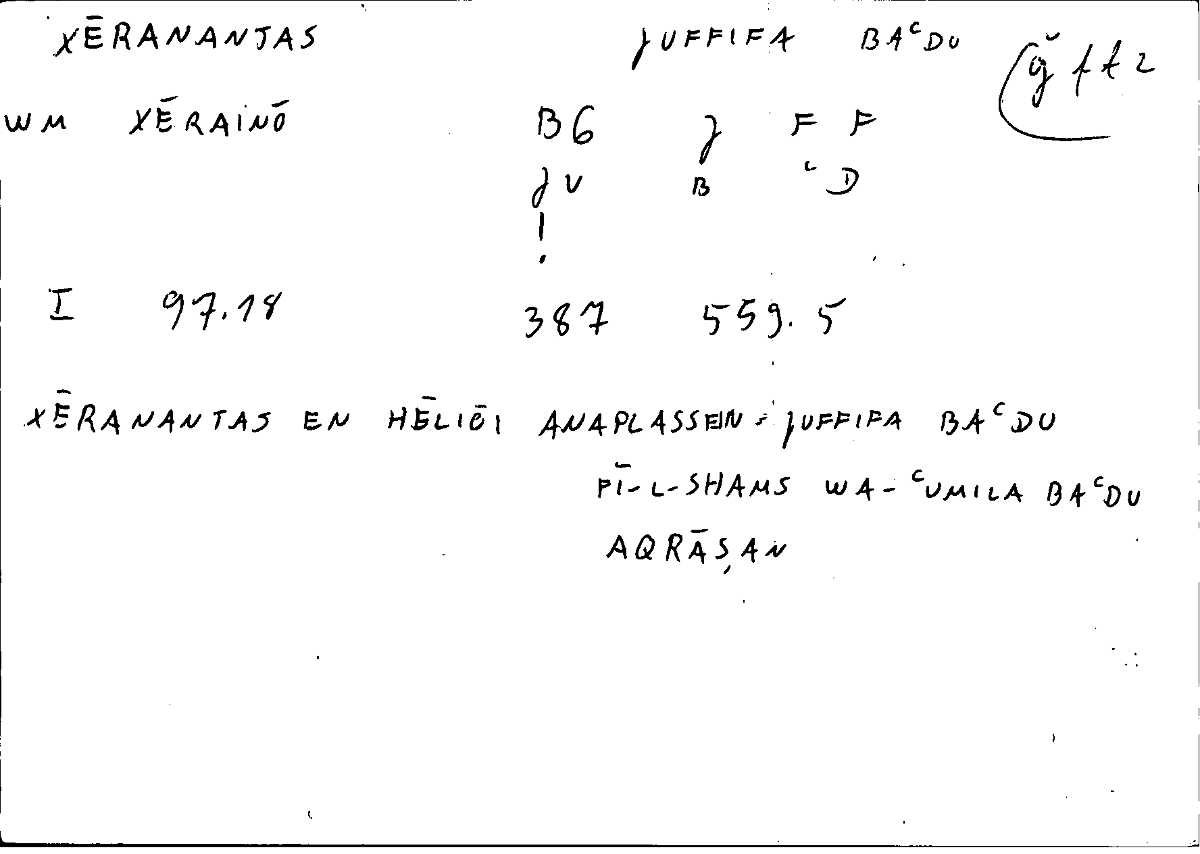 XĒRANANTAS JUFFIFA BAᶜDU ğ f f 2
WM XĒRAINŌ B6 J F F
JU B ᶜD
!
I 97.18 387 559.5
XĒRANANTAS EN HĒLIŌI ANAPLASSEIN = JUFFIFA BAᶜDU
FĪ-L-SHAMS WA-ᶜUMILA BAᶜDU
AQRĀṢAN